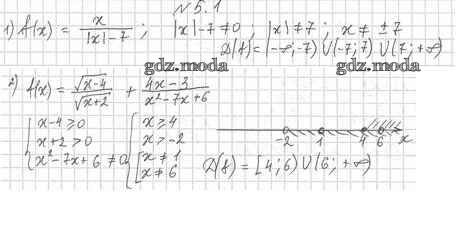 №5.1
1) f(x) = x/(|x|-7) ; |x|-7≠0 ; |x|≠7 ; x≠ ±7
D(f)=(-∞;-7)∪(-7;7)∪(7;+∞)
gdz.moda gdz.moda
2) f(x)= √(x-4)/√(x+2) + (4x-3)/(x²-7x+6)
{ x-4≥0 { x≥4
x+2>0 x>-2
x²-7x+6≠0 [ x≠1
x≠6
-2 1 4 6 x
D(f)=[4;6)∪(6;+∞)